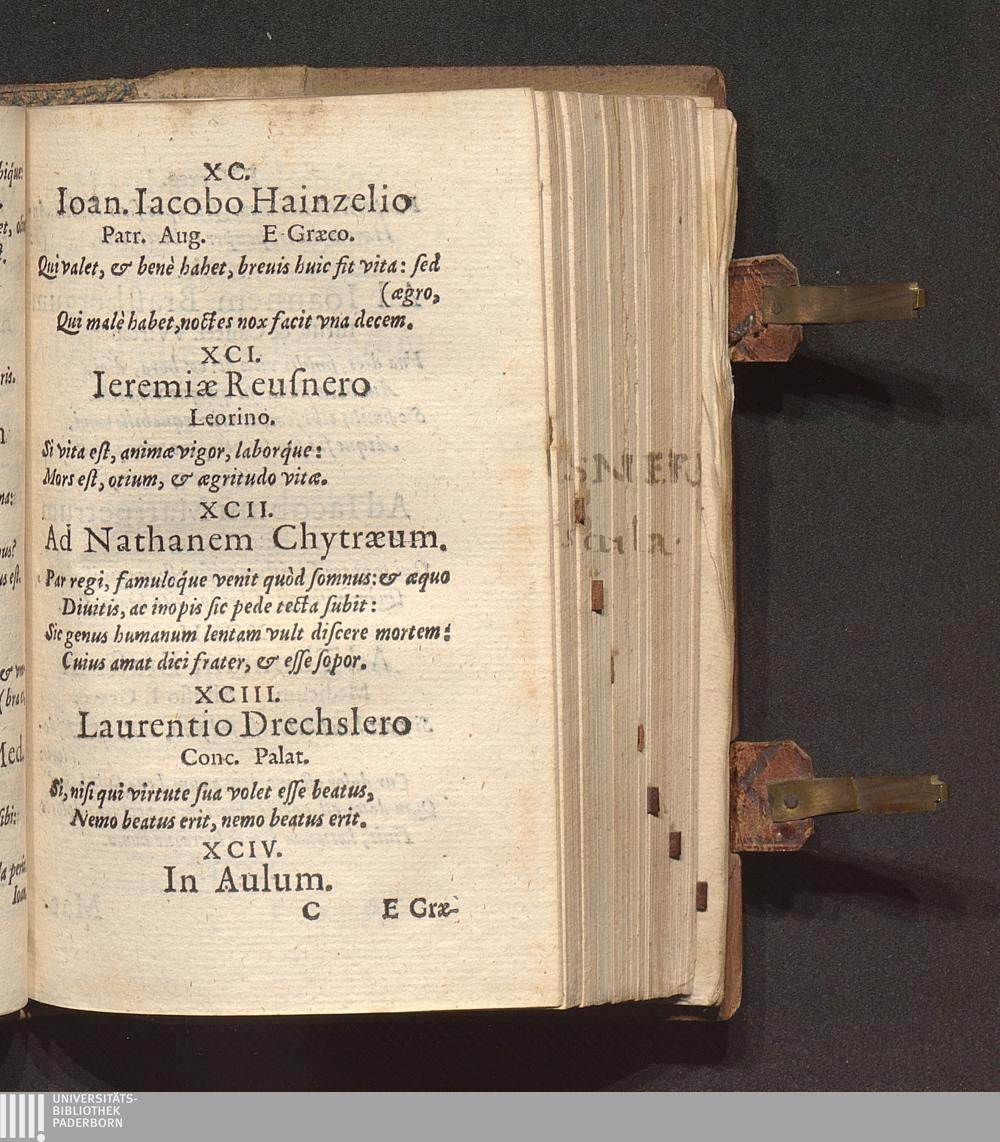 XC.
Ioan. Iacobo Hainzelio
Patr. Aug. E Græco.
Qui valet, & benè habet, breuis huic fit vita: ſed
(ægro,
Qui malè habet, noctes nox facit vna decem.
XCI.
Ieremiæ Reuſnero
Leorino.
Si vita eſt, animæ vigor, laborq́ue:
Mors eſt, otium, & ægritudo vitæ.
XCII.
Ad Nathanem Chytræum.
Par regi, famuloq́ue venit quòd ſomnus: & æquo
Diuitis, ac inopis ſic pede tecta ſubit:
Sic genus humanum lentam vult diſcere mortem:
Cuius amat dici frater, & eſſe ſopor.
XCIII.
Laurentio Drechslero
Conc. Palat.
Si, niſi qui virtute ſua volet eſſe beatus,
Nemo beatus erit, nemo beatus erit.
XCIV.
In Aulum.
C E Græ-
UNIVERSITÄTS-
BIBLIOTHEK
PADERBORN